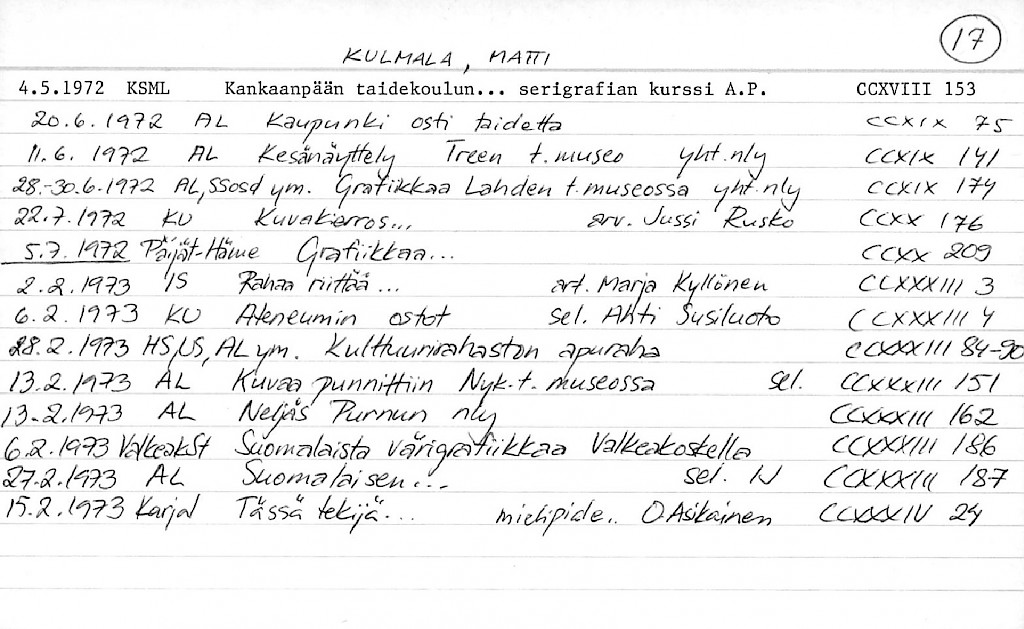 17
KULMALA, MATTI
4.5.1972 KSML Kankaanpään taidekoulun... serigrafian kurssi A.P. CCXVIII 153
20.6.1972 AL Kaupunki osti taidetta CCXIX 75
11.6.1972 AL Kesänäyttely Treen t.museo yht.nly CCXIX 141
28.-30.6.1972 AL,SSosd ym. Grafiikkaa Lahden t.museossa yht.nly CCXIX 174
22.7.1972 KU Kuvakierros... arv. Jussi Rusko CCXX 176
5.7.1972 Päijät-Häme Grafiikkaa... CCXX 209
2.2.1973 IS Rahaa riittää... art. Marja Kyllönen CCXXXIII 3
6.2.1973 KU Ateneumin ostot sel. Ahti Susiluoto CCXXXIII 4
28.2.1973 HS,US,AL ym. Kulttuurirahaston apuraha CCXXXIII 84-90
13.2.1973 AL Kuvaa punnittiin Nyk.t.museossa sel. CCXXXIII 151
13.2.1973 AL Neljäs Purnun nly CCXXXIII 162
6.2.1973 ValkeakSt Suomalaista värigrafiikkaa Valkeakoskella CCXXXIII 186
27.2.1973 AL Suomalaisen... sel. IV CCXXXIII 187
15.2.1973 Karjal Tässä tekijä... mielipide.. O.Asikainen CCXXXIV 24